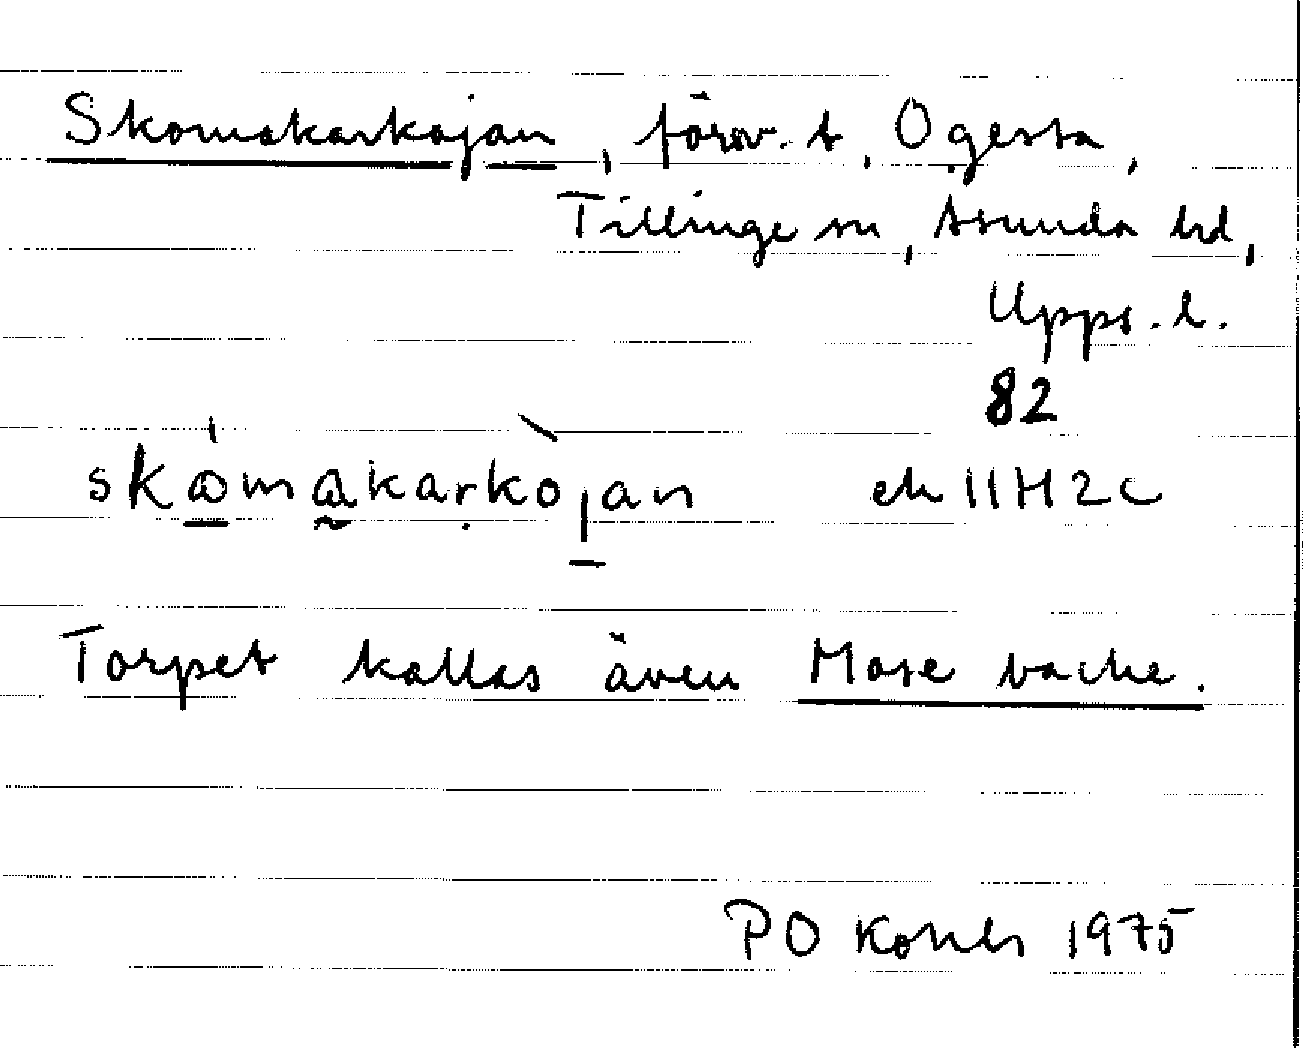 Skomakarkojan, försv. t, Ögesta,
Tillinge sn, Åsunda hd,
Upps. l.
82
skomakarkojan ek 11H2c
Torpet kallas även Mose backe.
PO 1975